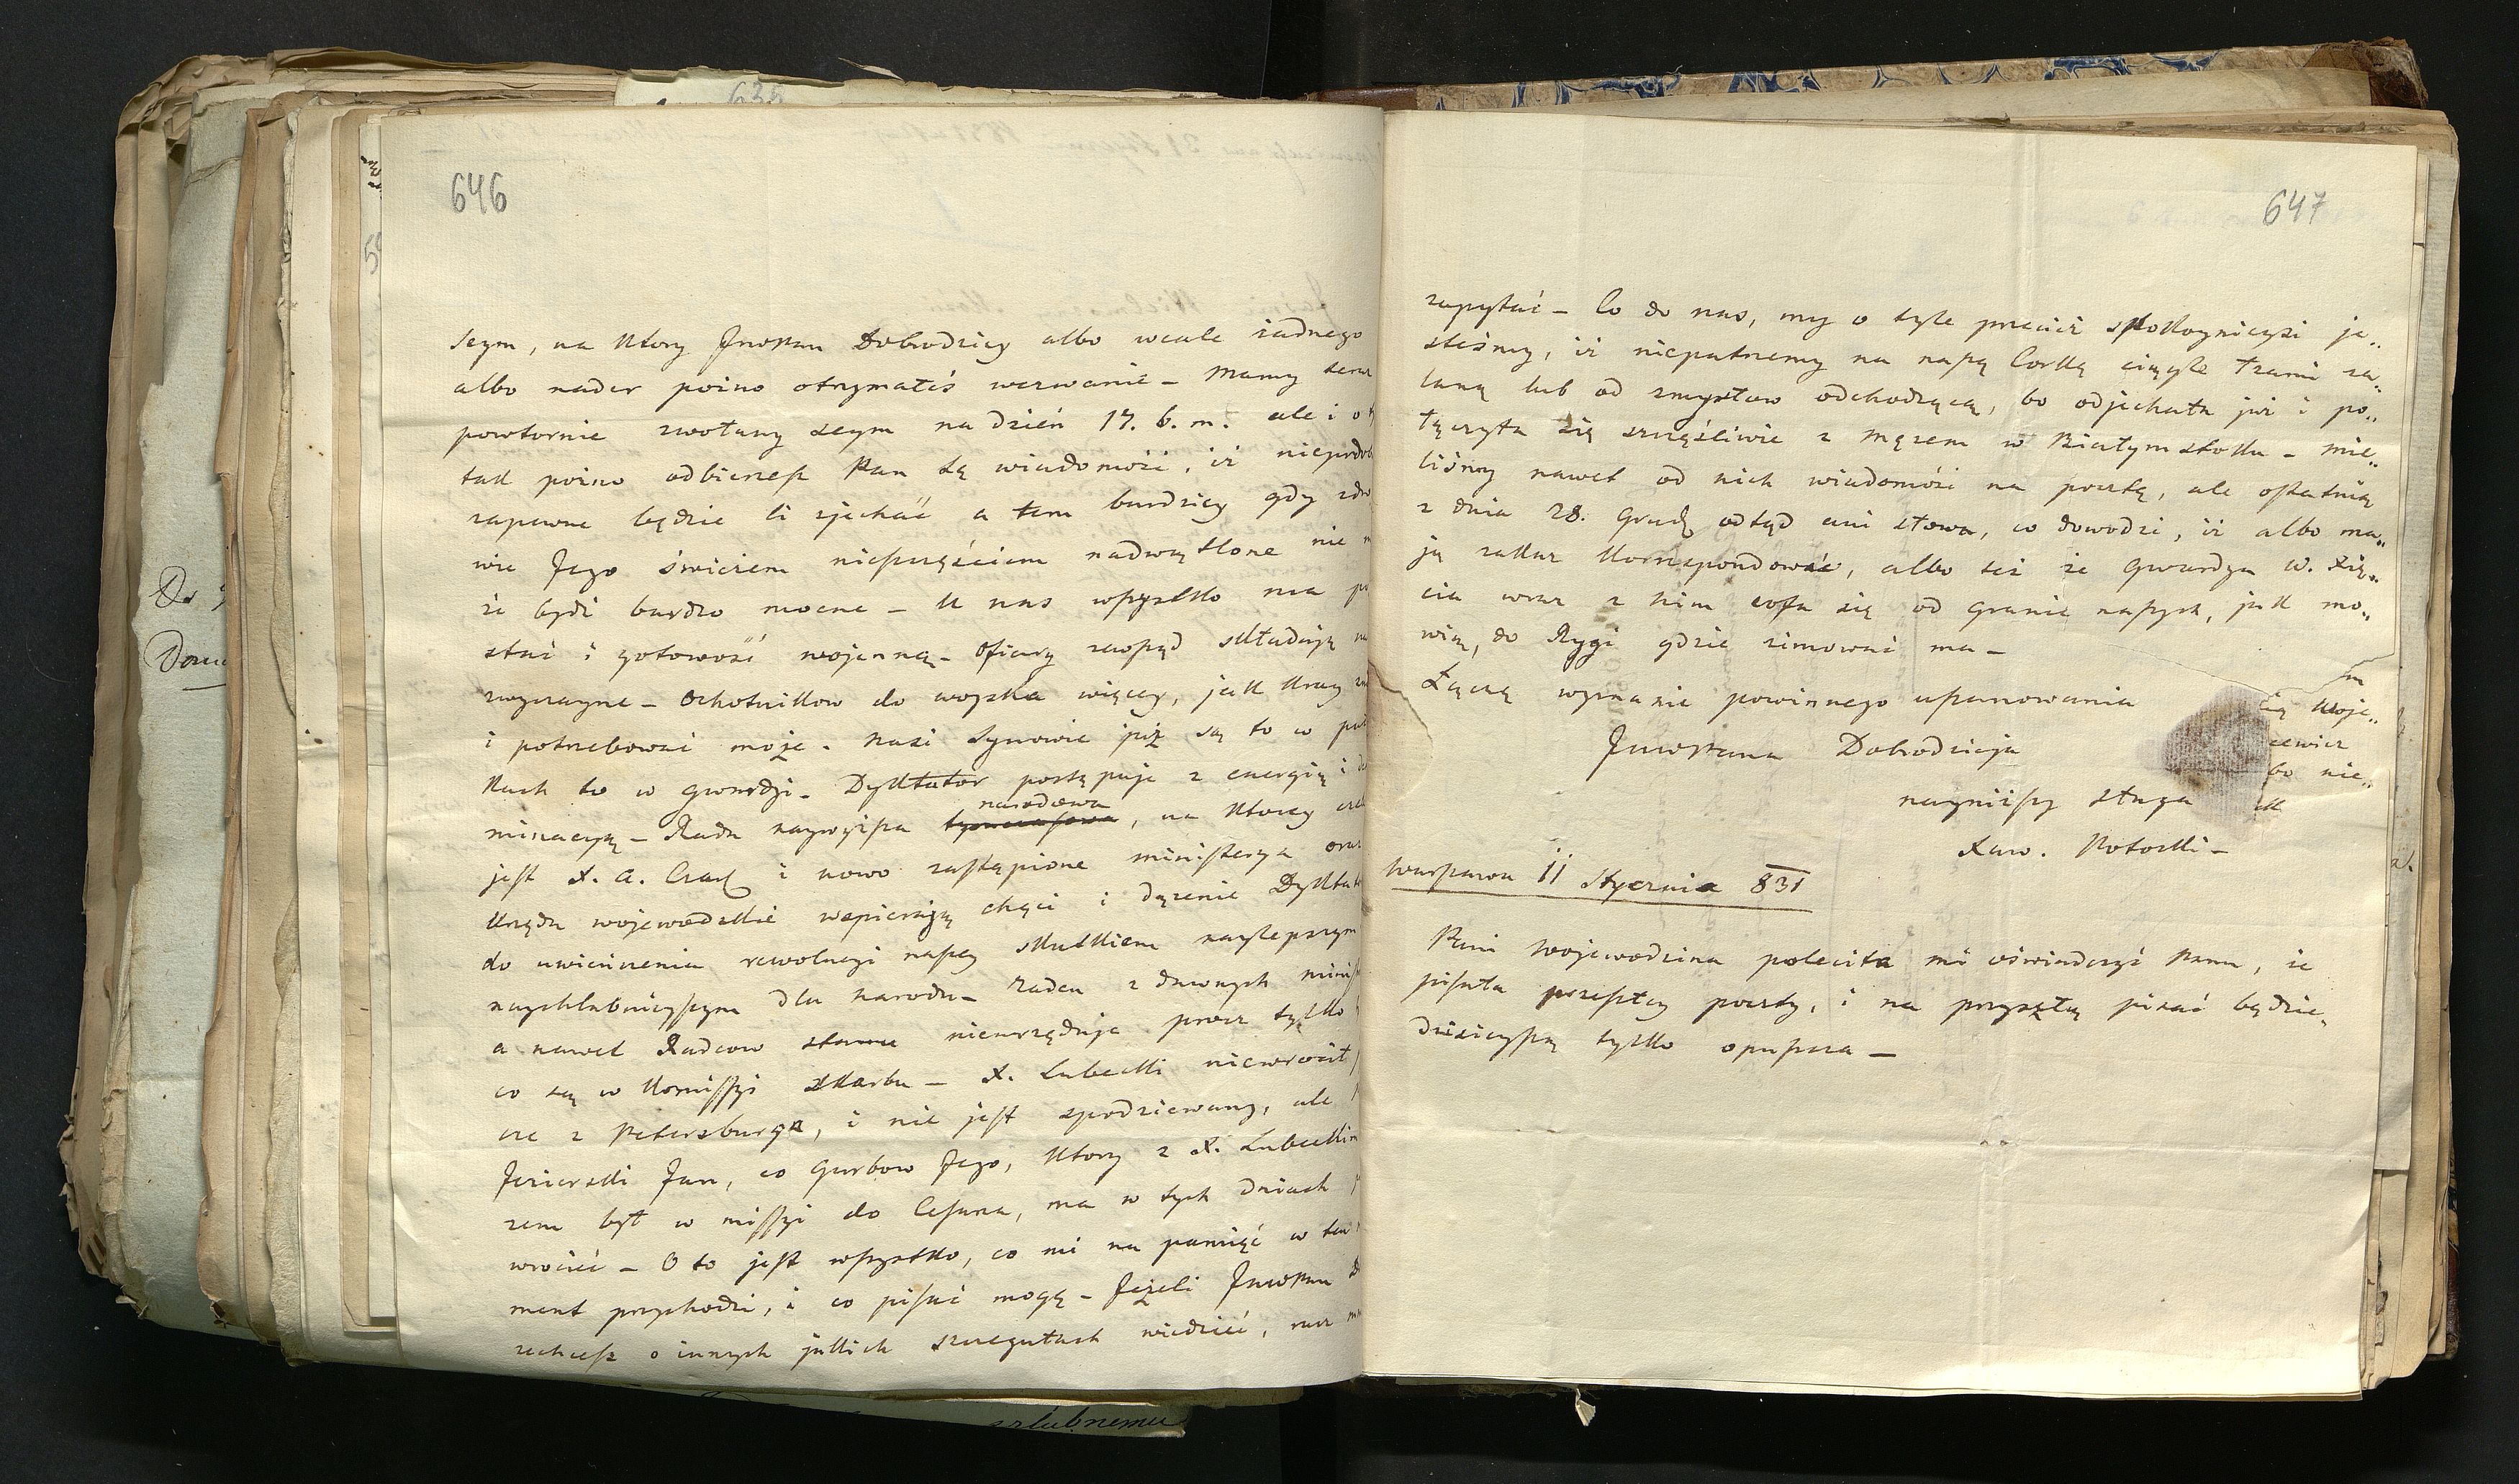 646
Seym, na ktory JwoPan Dobrodziey albo wcale żadnego
albo nader poźno otrzymałeś wezwanie – Mamy teraz
powtornie zwołany seym na dzień 17. b. m. ale i o
tak poźno odbierzesz Pan tą wiadomość, iż niepodob
zapewne będzie Ci zjechać a tem bardziey gdy zdro
wie Jego świeżem nieszczęściem nadwątlone nie
że bydź bardzo mocne – U nas wszystko ma po
stać i gotowość wojenną – Ofiary zewsząd składają
zwyczayne – Ochotnikow do woyska więcey, jak kray
i potrzebować może. Nasi Synowie już są to w puł
kach to w gwardji – Dyktator postępuje z energią i
minacyą – Rada naywyższa tymczasowa narodowa, na ktorey czele
jest X. A. Czart i nowo zastąpione ministerya oraz
Urzęda wojewodzkie wspierają chęci i dążenie Dyktat
do uwieńczenia rewolucyi naszey skutkiem naylepszym
naychlubnieyszym dla Narodu – Żaden z dawnych minis
a nawet Radcow stanu nieurzęduje prócz tylko
co są w Kommissyi Skarbu – X. Lubecki niewrócił
cze z Petersburga, i nie jest spodziewany, ale
Jezierski Jan, co Garbow Jego, ktory z X. Lubeckim
zem był w missyi do Cesarza, ma w tych dniach
wrócić – O to jest wszystko, co mi na pamięć w ten
ment przychodzi, i co pisać mogę – Jeżeli JwoPan
zechcesz o innych jakich szczegułach wiedzieć, racz
647
zapytać – Co do nas, my o tyle przecież spokoynieysi je„
steśmy, iż niepatrzemy na naszą Corkę ciągle łzami za„
laną lub od zmysłow odchodzącą, bo odjechała już i po„
łączyła się szczęśliwie z mężem w Białymstoku – mie„
liśmy nawet od nich wiadomość na pocztę, ale ostatnią
z dnia 28. Grud. odtąd ani słowa, co dowodzi, iż albo ma„
ją zakaz korrespondować, albo też że Gwardya W. Xię„
cia wraz z nim cofa się od granic naszych, jak mo„
wią, do Rygi gdzie zimować ma –
Łączę wyznanie powinnego uszanowania
JwoPana Dobrodzieja
nayniższy sługa
Xaw. Potocki –
Warszawa 11 Stycznia 831
Pani Wojewodzina poleciła mi oświadczyć Panu, że
pisała przeszłey poczty, i na przyszłą pisać będzie,
dzisieyszą tylko opuszcza –